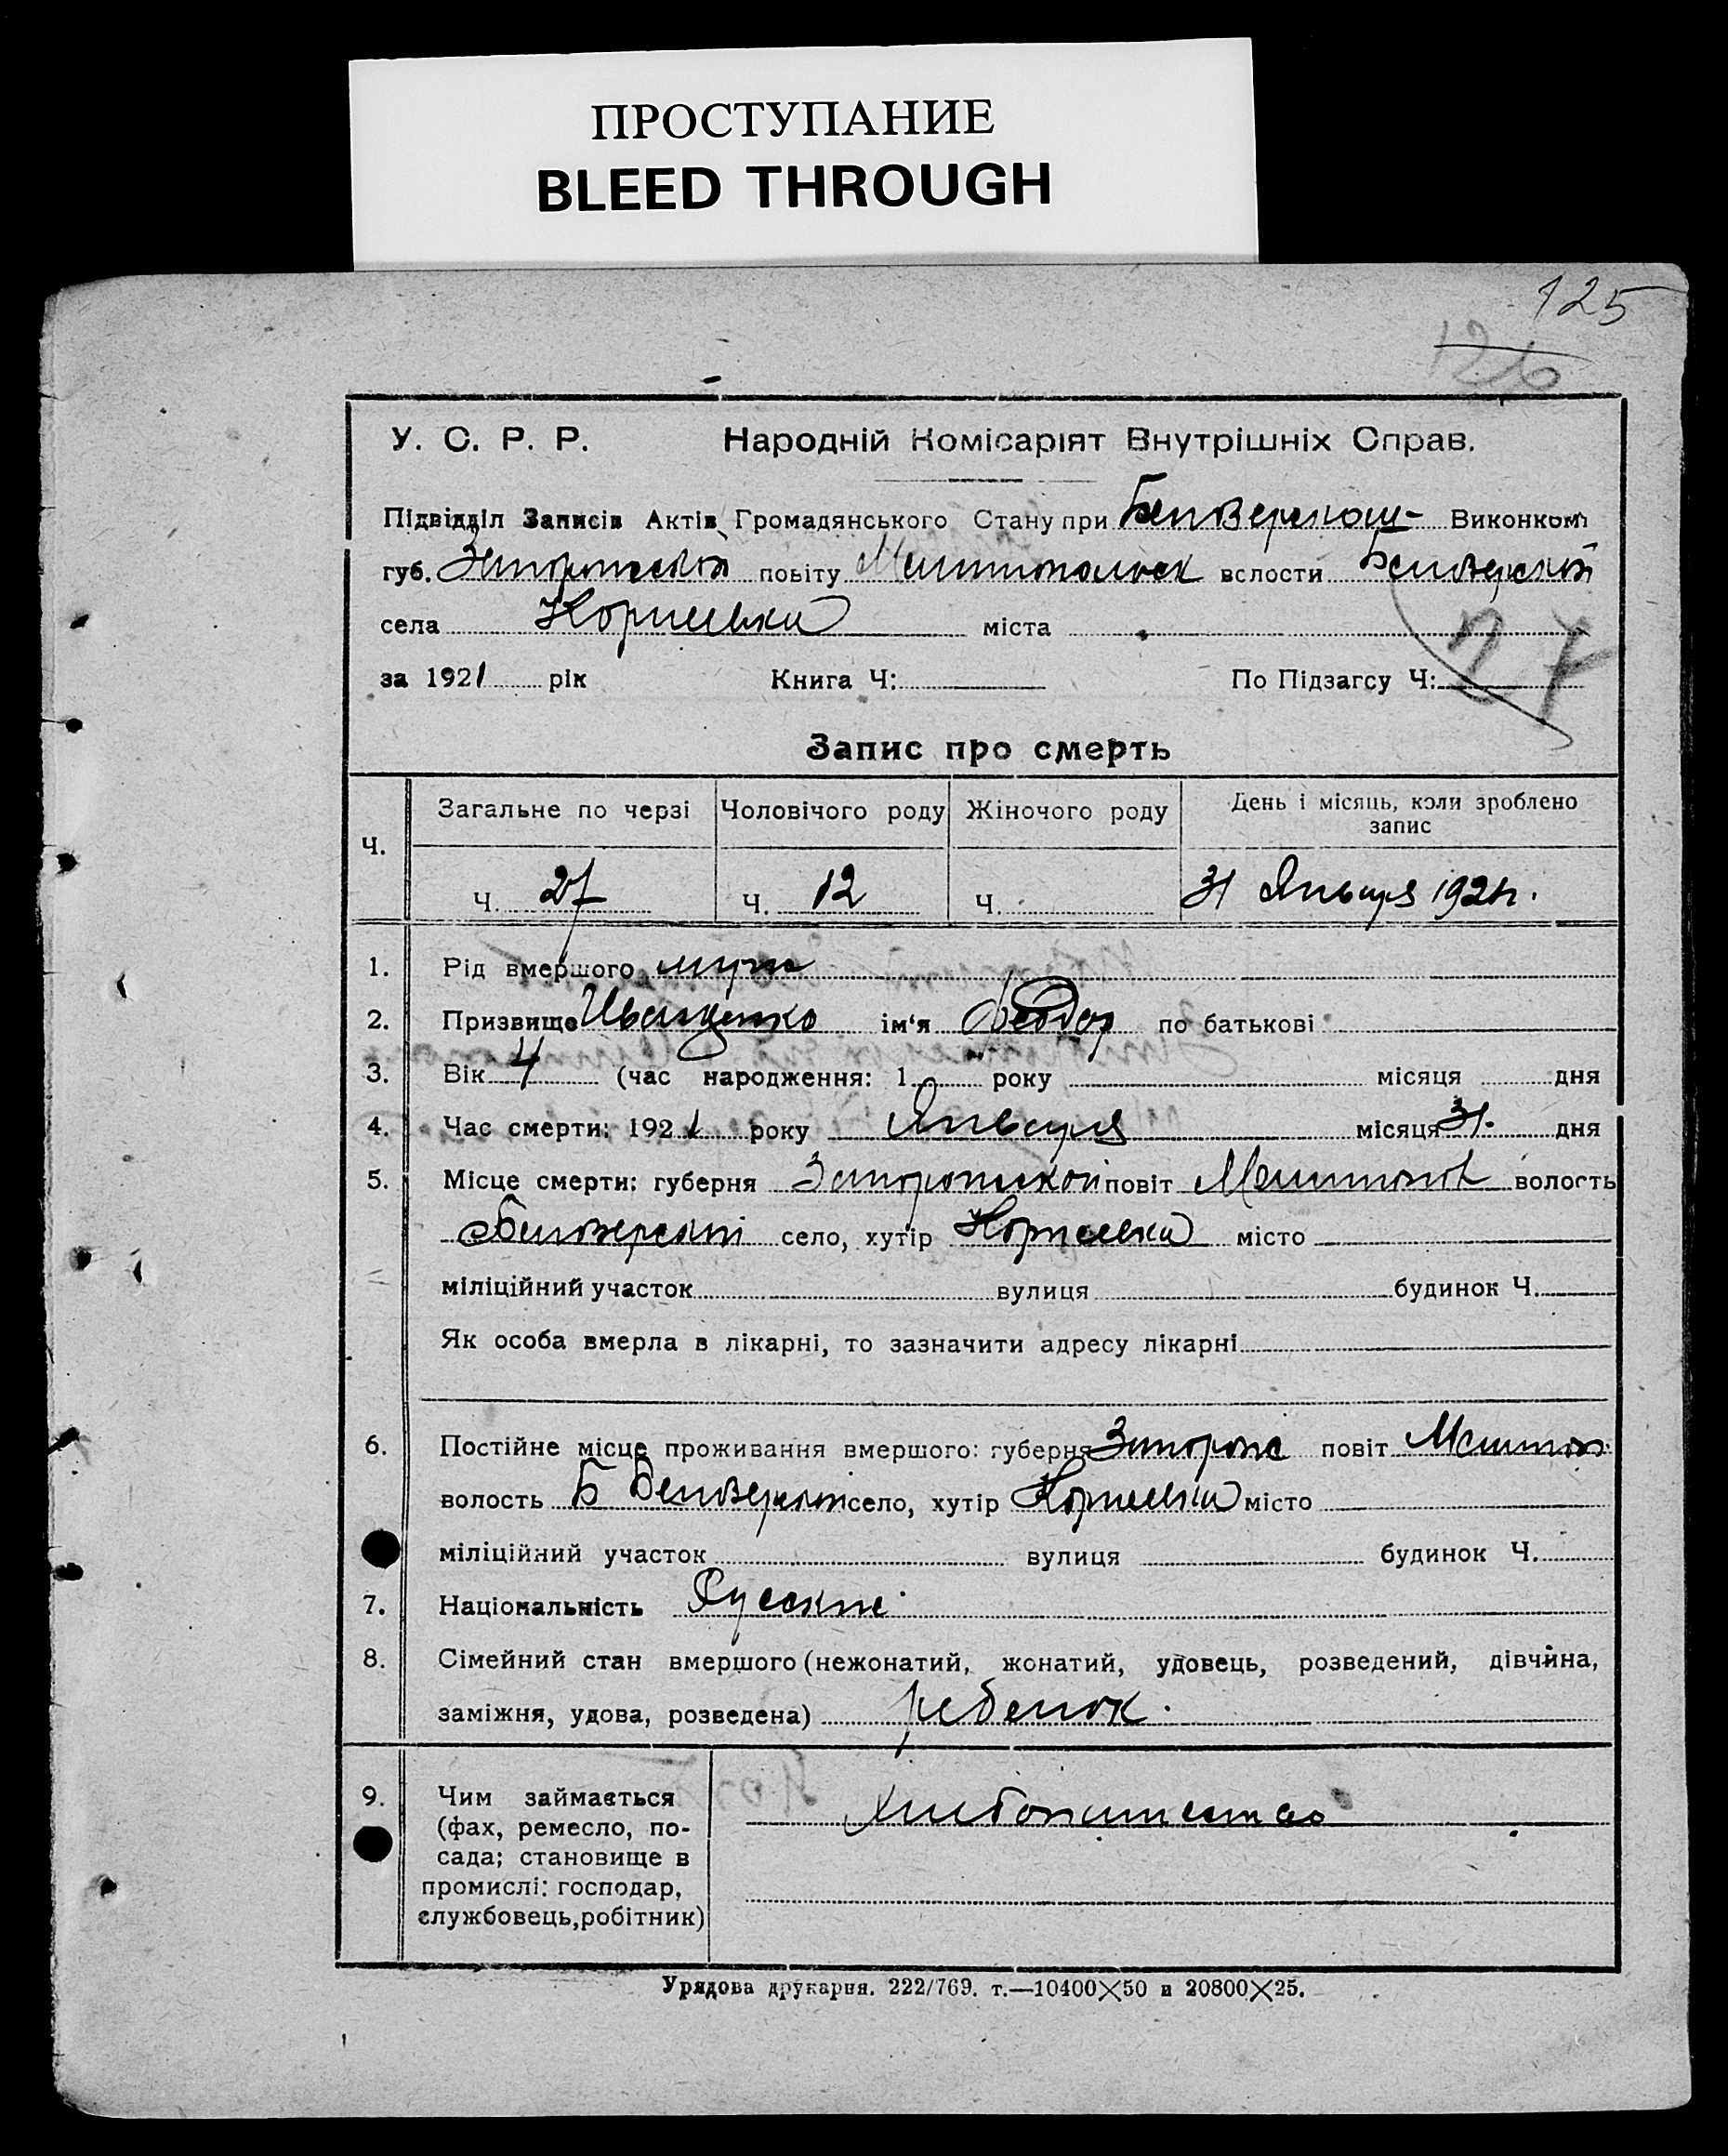 ПРОСТУПАНИЕ
BLEED THROUGH
125
126
У. С. Р. Р. Народній Комісаріят Внутрішніх Справ.
Підвідділ Записів Актів Громадянського Стану при Виконкомі
губ. повіту волости
села міста
27
за 1921 рік Книга Ч: По Підзагсу Ч:
Запис про смерть
Ч.
Загальне по черзі Чоловічого роду Жіночого роду День і місяць, коли зроблено запис
Ч. 27 Ч. 12 Ч. 31 Января 1921 г.
1. Рід вмершого муж
2. Призвище Иващенко ім'я Феодор по батькові
3. Вік 4 (час народження: 1 року місяця дня
4. Час смерти: 1921 року Января місяця 31. дня
5. Місце смерти: губерня Запорожской повіт Мелитопол волость
Белозерской село, хутір місто
міліційний участок вулиця будинок Ч.
Як особа вмерла в лікарні, то зазначити адресу лікарні
6. Постійне місце проживання вмершого: губерня Запорож повіт Мелитоп.
волость Б Белозерской село, хутір місто
міліційний участок вулиця будинок Ч.
7. Національність Русские
8. Сімейний стан вмершого (нежонатий, жонатий, удовець, розведений, дівчина,
заміжня, удова, розведена) ребенок.
9. Чим займається Хлебопашество
(фах, ремесло, по-
сада; становище в
промислі: господар,
службовець, робітник)
Урядова друкарня. 222/769. т.—10400×50 и 20800×25.